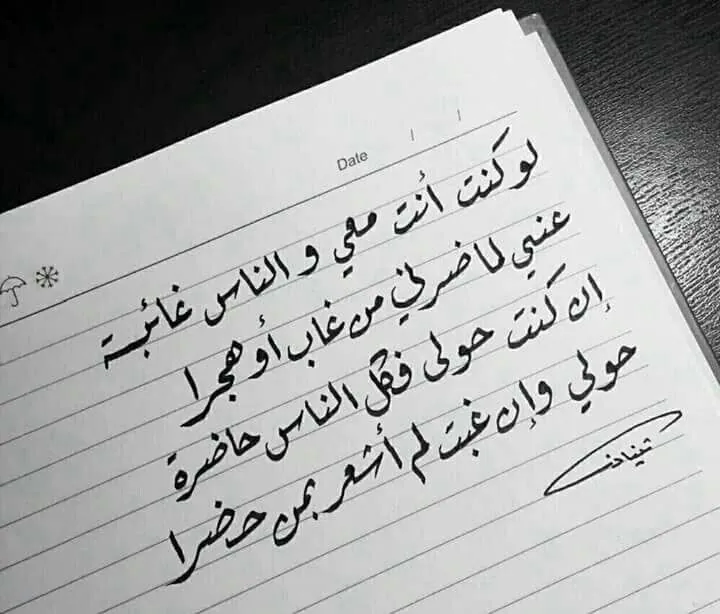 Date / /
لو كنت أنت معي و الناس غائبة
عني لما ضرني من غاب أو هجرا
إن كنت حولي فكل الناس حاضرة
حولي وإن غبت لم أشعر بمن حضرا